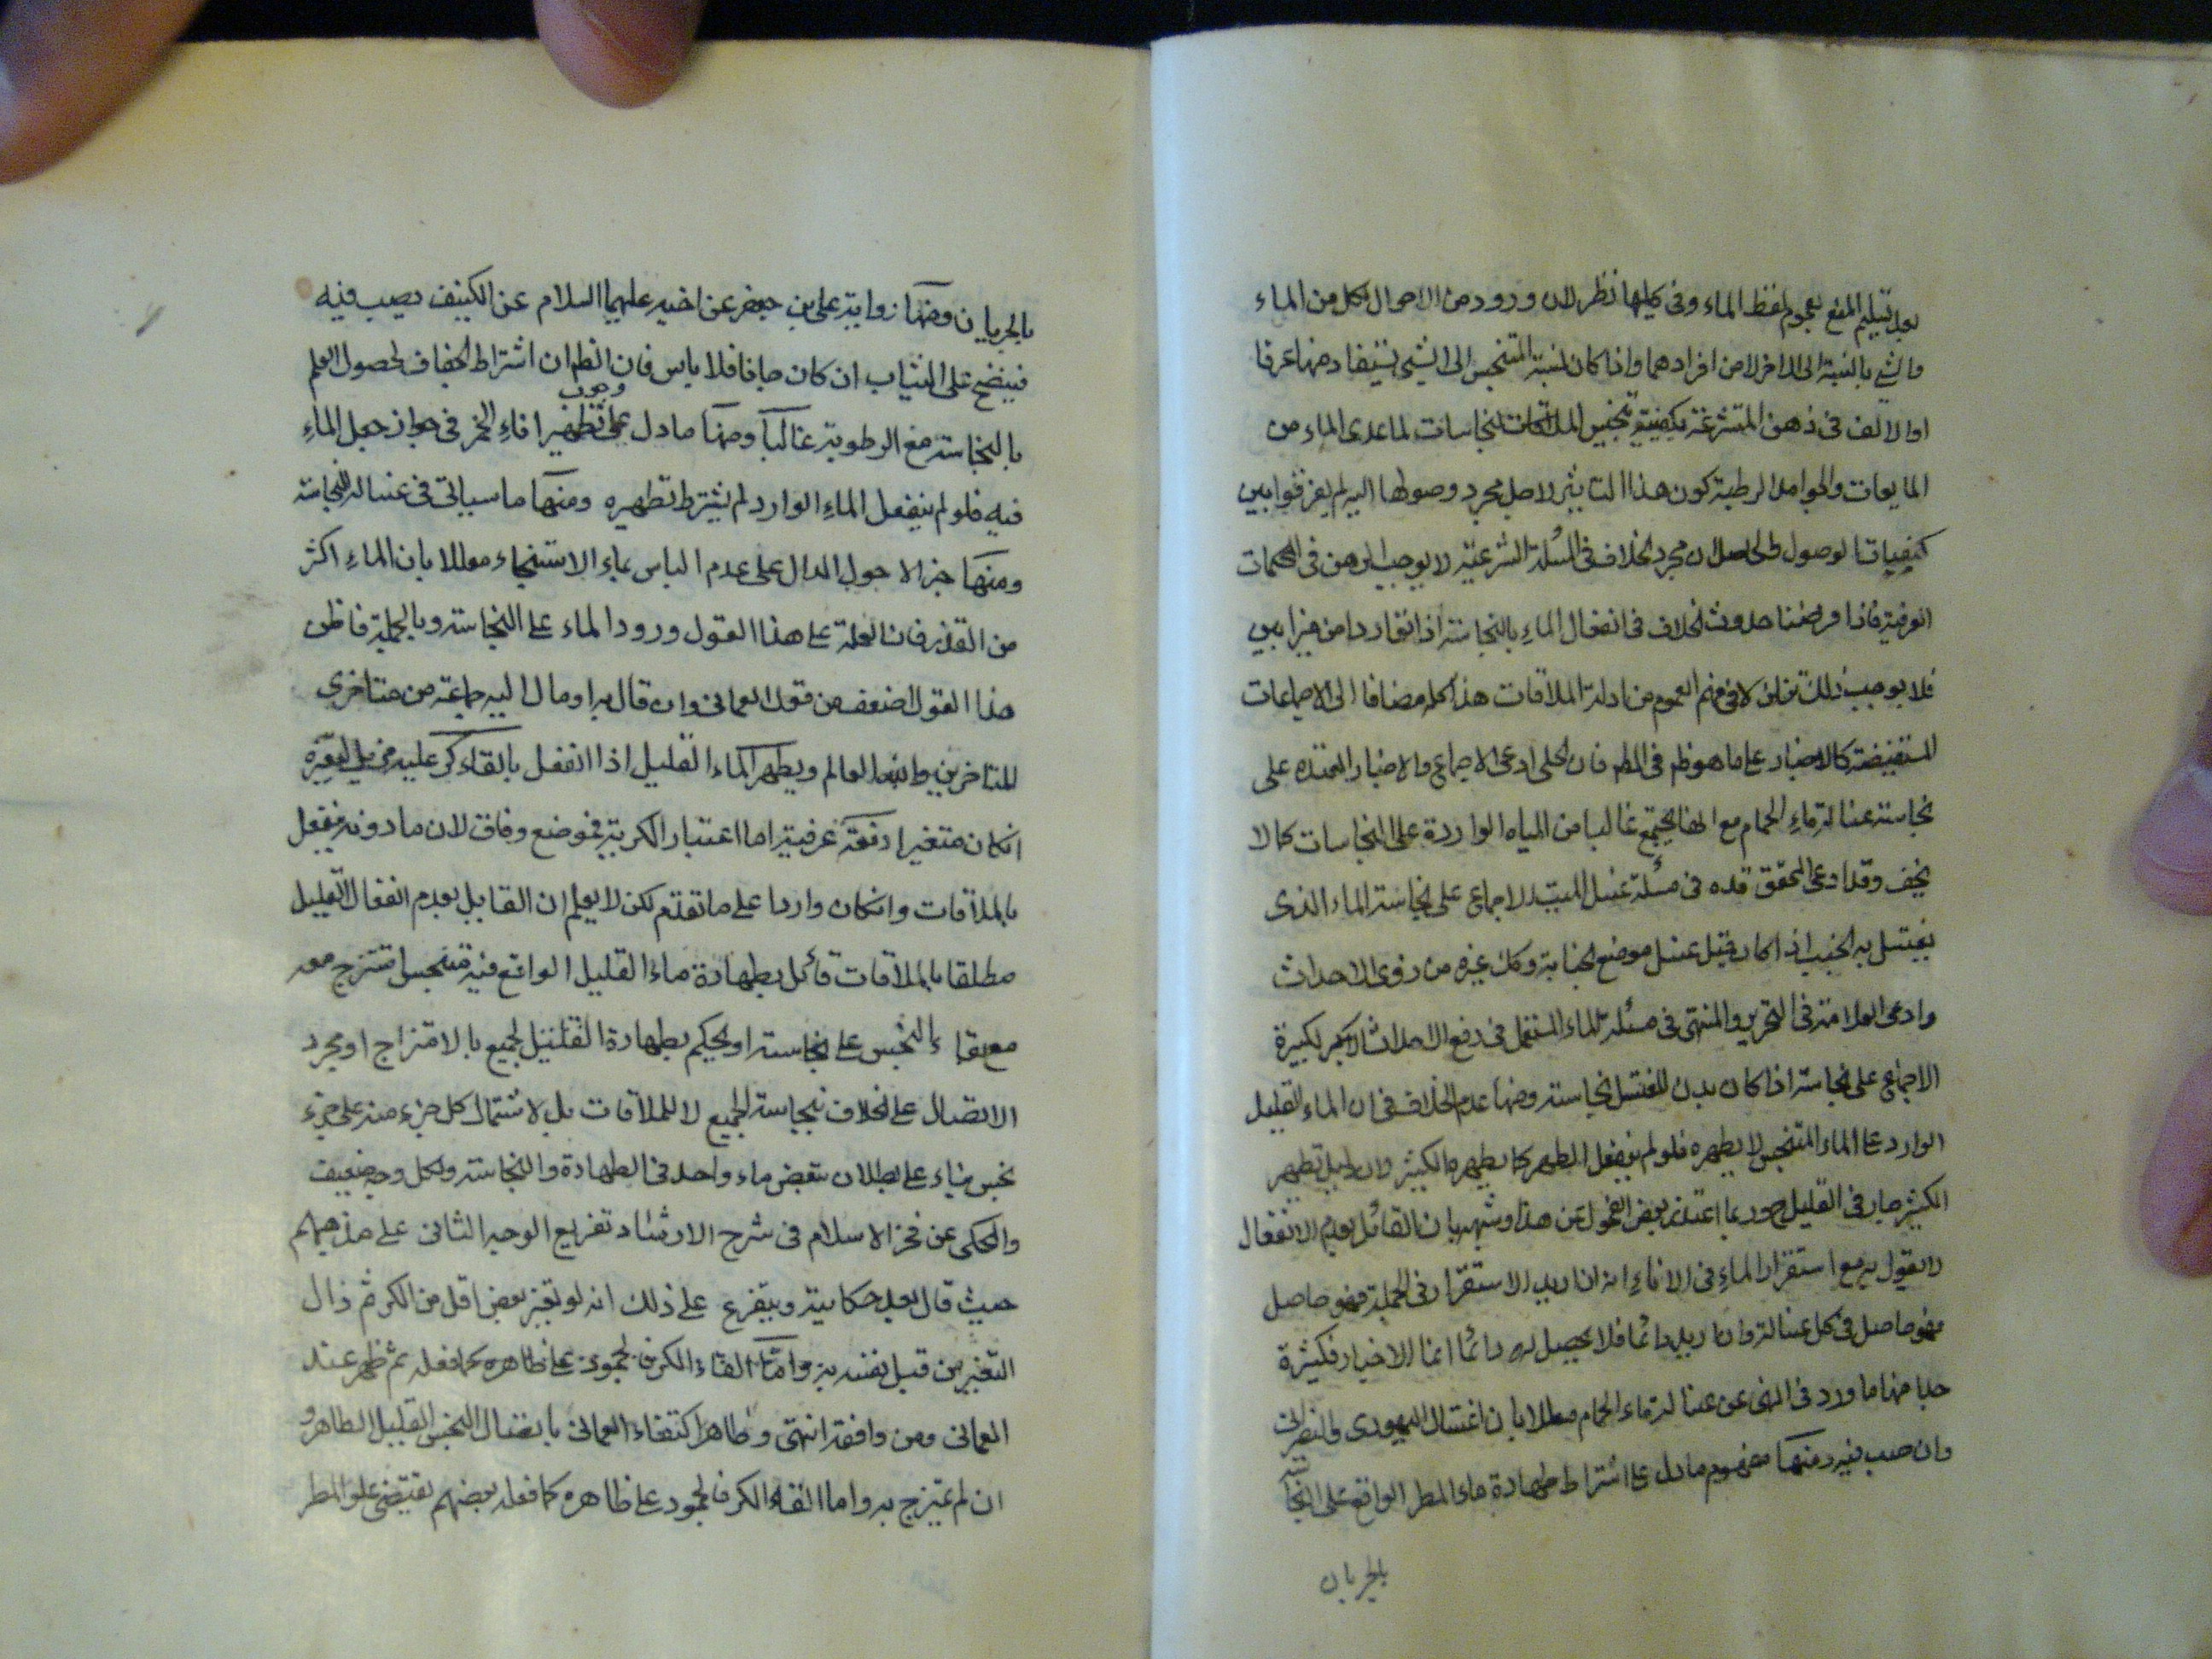 بعد تسليم المنع بعموم لفظ الماء وفى كليهما نظر لان ورود من الاحوال لكل من الماء
والشئ بالنسبة الى الاخر لا من افرادهما واذا كان نسبة المتنجس الى الشئ يستفاد منها عرفا
او لا لف فى ذهن المتشرعة بكيفية تنجيس الملاقات لنجاسات لما عدى الماء من
المايعات والجوامد الرطبة كون هذا التاثير لاجل مجرد وصولها اليه لم يفرقوا بين
كيفيات الوصول والحاصل ان مجرد الخلاف فى المسئلة الشرعية لا يوجب الوهن فى
العرفية فاذا فرضنا حدوث الخلاف فى انفعال الماء بالنجاسة اذا تقاردا من ميزابين
فلا يوجب ذلك فى فهم العموم من ادلة الملاقات هذا كله مضافا الى الاجماعات
المستفيضة كالاخبار على ما هو ظم فى المطر فان الحلى ادعى الاجماع والاخبار المعتمدة على
نجاسة غسالة ماء الحمام مع انها يجتمع غالبا من المياه الواردة على النجاسات كما لا
يخفى وقد ادعى المحقق قده فى مسئلة غسل الميت الاجماع على نجاسة الماء الذى
يغتسل به الجنب اذا كان قبل غسل موضع الجنابة وكك غيره من ذوى الاحداث
وادعى العلامة فى التحرير والمنتهى فى مسئلة الماء المستعمل فى رفع الاحداث الكبيرة
الاجماع على نجاسته اذا كان بدن المغتسل نجاسة ومنها عدم الخلاف فى ان الماء القليل
الوارد على الماء المتنجس لا يطهره فلو لم ينفعل الطهر كما يطهره الكثير وان دليل تطهير
الكثير جار فى القليل وربما اعتذر بعض الفحول عن هذا وشبهه بان القائل بعدم الانفعال
لا يقول به مع استقرار الماء فى الاناء انه ان اريد الاستقرار فى الجملة فهو حاصل
فهو حاصل فى كل غسالة وان اريد دائما فلا يحصل له دائما اما الاخبار فكثيرة
جدا منها ما ورد فى النهى عن غسالة ماء الحمام معللا بان اغتسال اليهودى والنصرانى
وان صب فيه ومنها مفهوم ما دل على اشتراط طهارة ماء المطر الواقع على النجاسة
بالجريان
بالجريان ومنها رواية على بن جعفر عن اخيه عليهما السلام عن الكنيف يصب فيه
فينضح على الثياب ان كان جافا فلا باس فان الظم ان اشتراط الجفاف لحصول العلم
بالنجاسة مع الرطوبة غالبا ومنها ما دل على وجوب تطهير اناء الخمر فى جواز جعل الماء
فيه فلو لم ينفعل الماء الوارد لم يشترط تطهيره ومنها ما سياتى فى غسالة النجاسة
ومنها خبر الاحول الدال على عدم الباس بماء الاستنجاء معللا بان الماء اكثر
من القذر فان العلة على هذا القول ورود الماء على النجاسة وبالجملة فاظن
هذا القول اضعف من قول العمانى وان قال به او مال اليه جماعة من متاخرى
المتاخرين والله العالم ويطهر الماء القليل اذا انفعل بالقاء كر عليه مزيل لتغيره
ان كان متغيرا دفعة عرفية اما اعتبار الكرية فموضع وفاق لان ما دونه ينفعل
بالملاقات وان كان واردا على ما تقدم لكن لا يعلم ان القايل بعدم انفعال القليل
مطلقا بالملاقات قائل بطهارة ماء القليل الواقع فيه متنجس امتزج معه
مع بقاء النجس على نجاسته او يحكم بطهارة القليل لجميع بالامتزاج او مجرد
الاتصال على الخلاف نجاسة الجميع لا للملاقات بل لاشتمال كل جزء منه على جزء
نجس بناء على بطلان تبعض ماء واحد فى الطهارة والنجاسة ولكل وجه ضعيف
والمحكى عن فخر الاسلام فى شرح الارشاد تفريع الوجه الثانى على مذهبهم
حيث قال بعد حكايته ويتفرع على ذلك انه لو تغير بعض اقل من الكر ثم زال
التغير من قبل نفسه واما القاء الكر على ظاهره كما فعله ثم طهر عند
العمانى ومن وافقه انتهى وظاهر اكتفاء العمانى باتصال النجس القليل الطاهر و
ان لم يمتزج به واما القاء الكر فالجمود على ظاهره كما فعله بعضهم يقتضى علو المطر